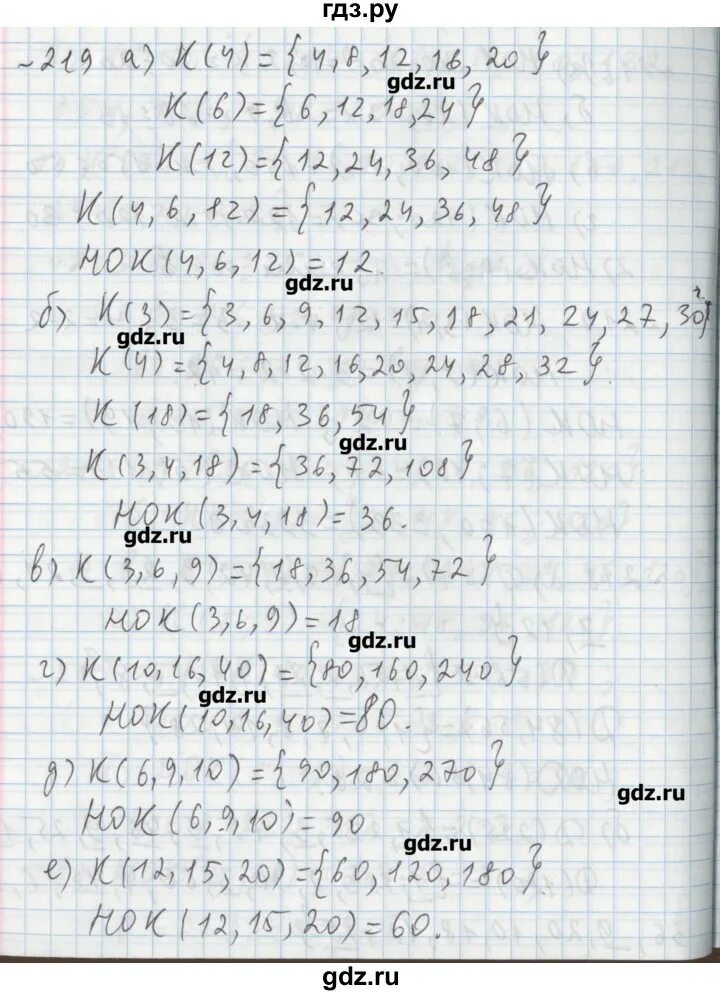 гдз.ру
~219 а) К(4)={4,8,12,16,20}
gdz.ru
К(6)={6,12,18,24}
К(12)={12,24,36,48}
К(4,6,12)={12,24,36,48}
НОК(4,6,12)=12.
gdz.ru
б) К(3)={3,6,9,12,15,18,21,24,27,30}
gdz.ru
К(4)={4,8,12,16,20,24,28,32}.
К(18)={18,36,54}
gdz.ru
К(3,4,18)={36,72,108}
НОК(3,4,18)=36.
gdz.ru
в) К(3,6,9)={18,36,54,72}
НОК(3,6,9)=18
gdz.ru
г) К(10,16,40)={80,160,240}
gdz.ru
НОК(10,16,40)=80.
д) К(6,9,10)={90,180,270}
gdz.ru
НОК(6,9,10)=90
gdz.ru
е) К(12,15,20)={60,120,180}.
НОК(12,15,20)=60.
gdz.ru